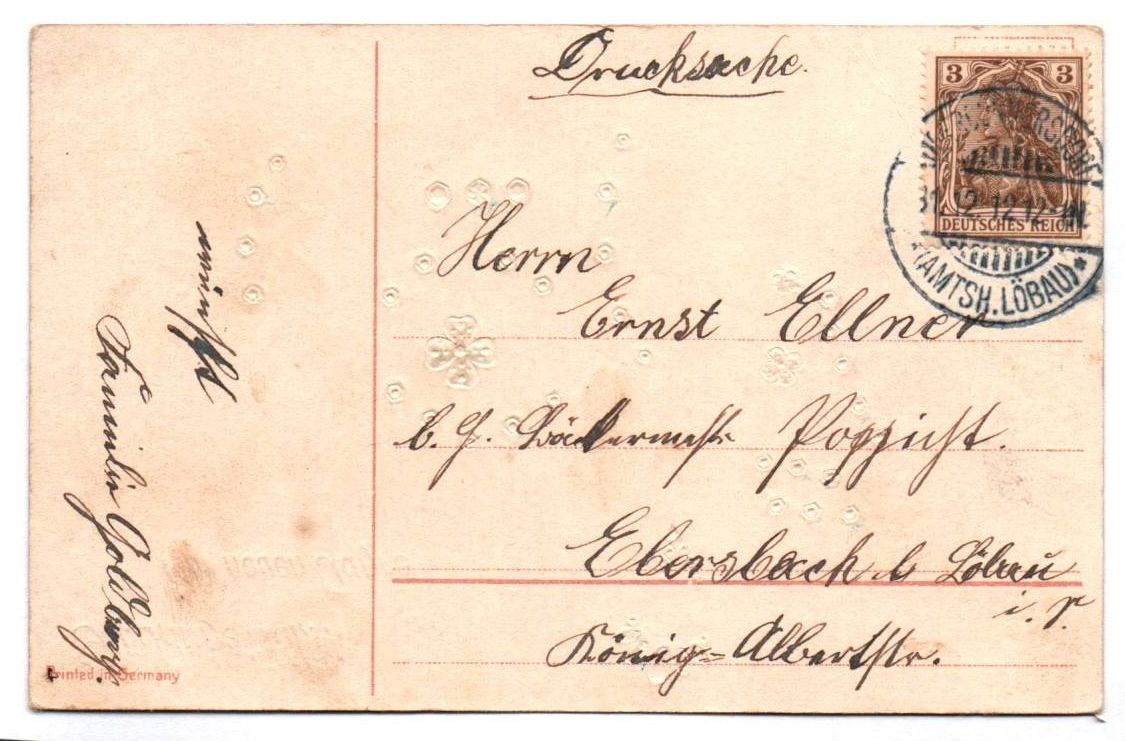 Drucksache.
3 3
DEUTSCHES REICH
31.12.12.12-
(AMTSH. LÖBAU)
Herrn
Ernst Ellner
b. H. Bäckermstr. Poppicht.
Ebersbach b Löbau
i. S.
König-Albertstr.
wünscht
Familie Goldberg.
Printed in Germany